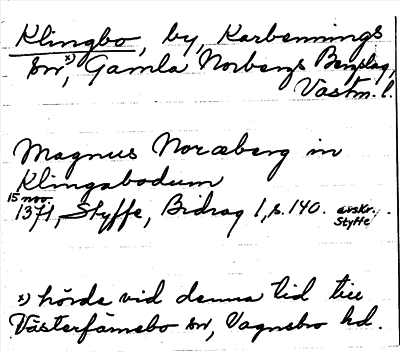 Klingbo, by, Karbennings
sn x), Gamla Norbergs Bergslag,
Vastm. l.
Magnus Noræberg in
Klingabodum
15 nov.
1371, Styffe, Bidrag 1, s. 140. avskr. Styffe.
x) hörde vid denna tid till
Västerfärnebo sn, Vagnsbro hd.